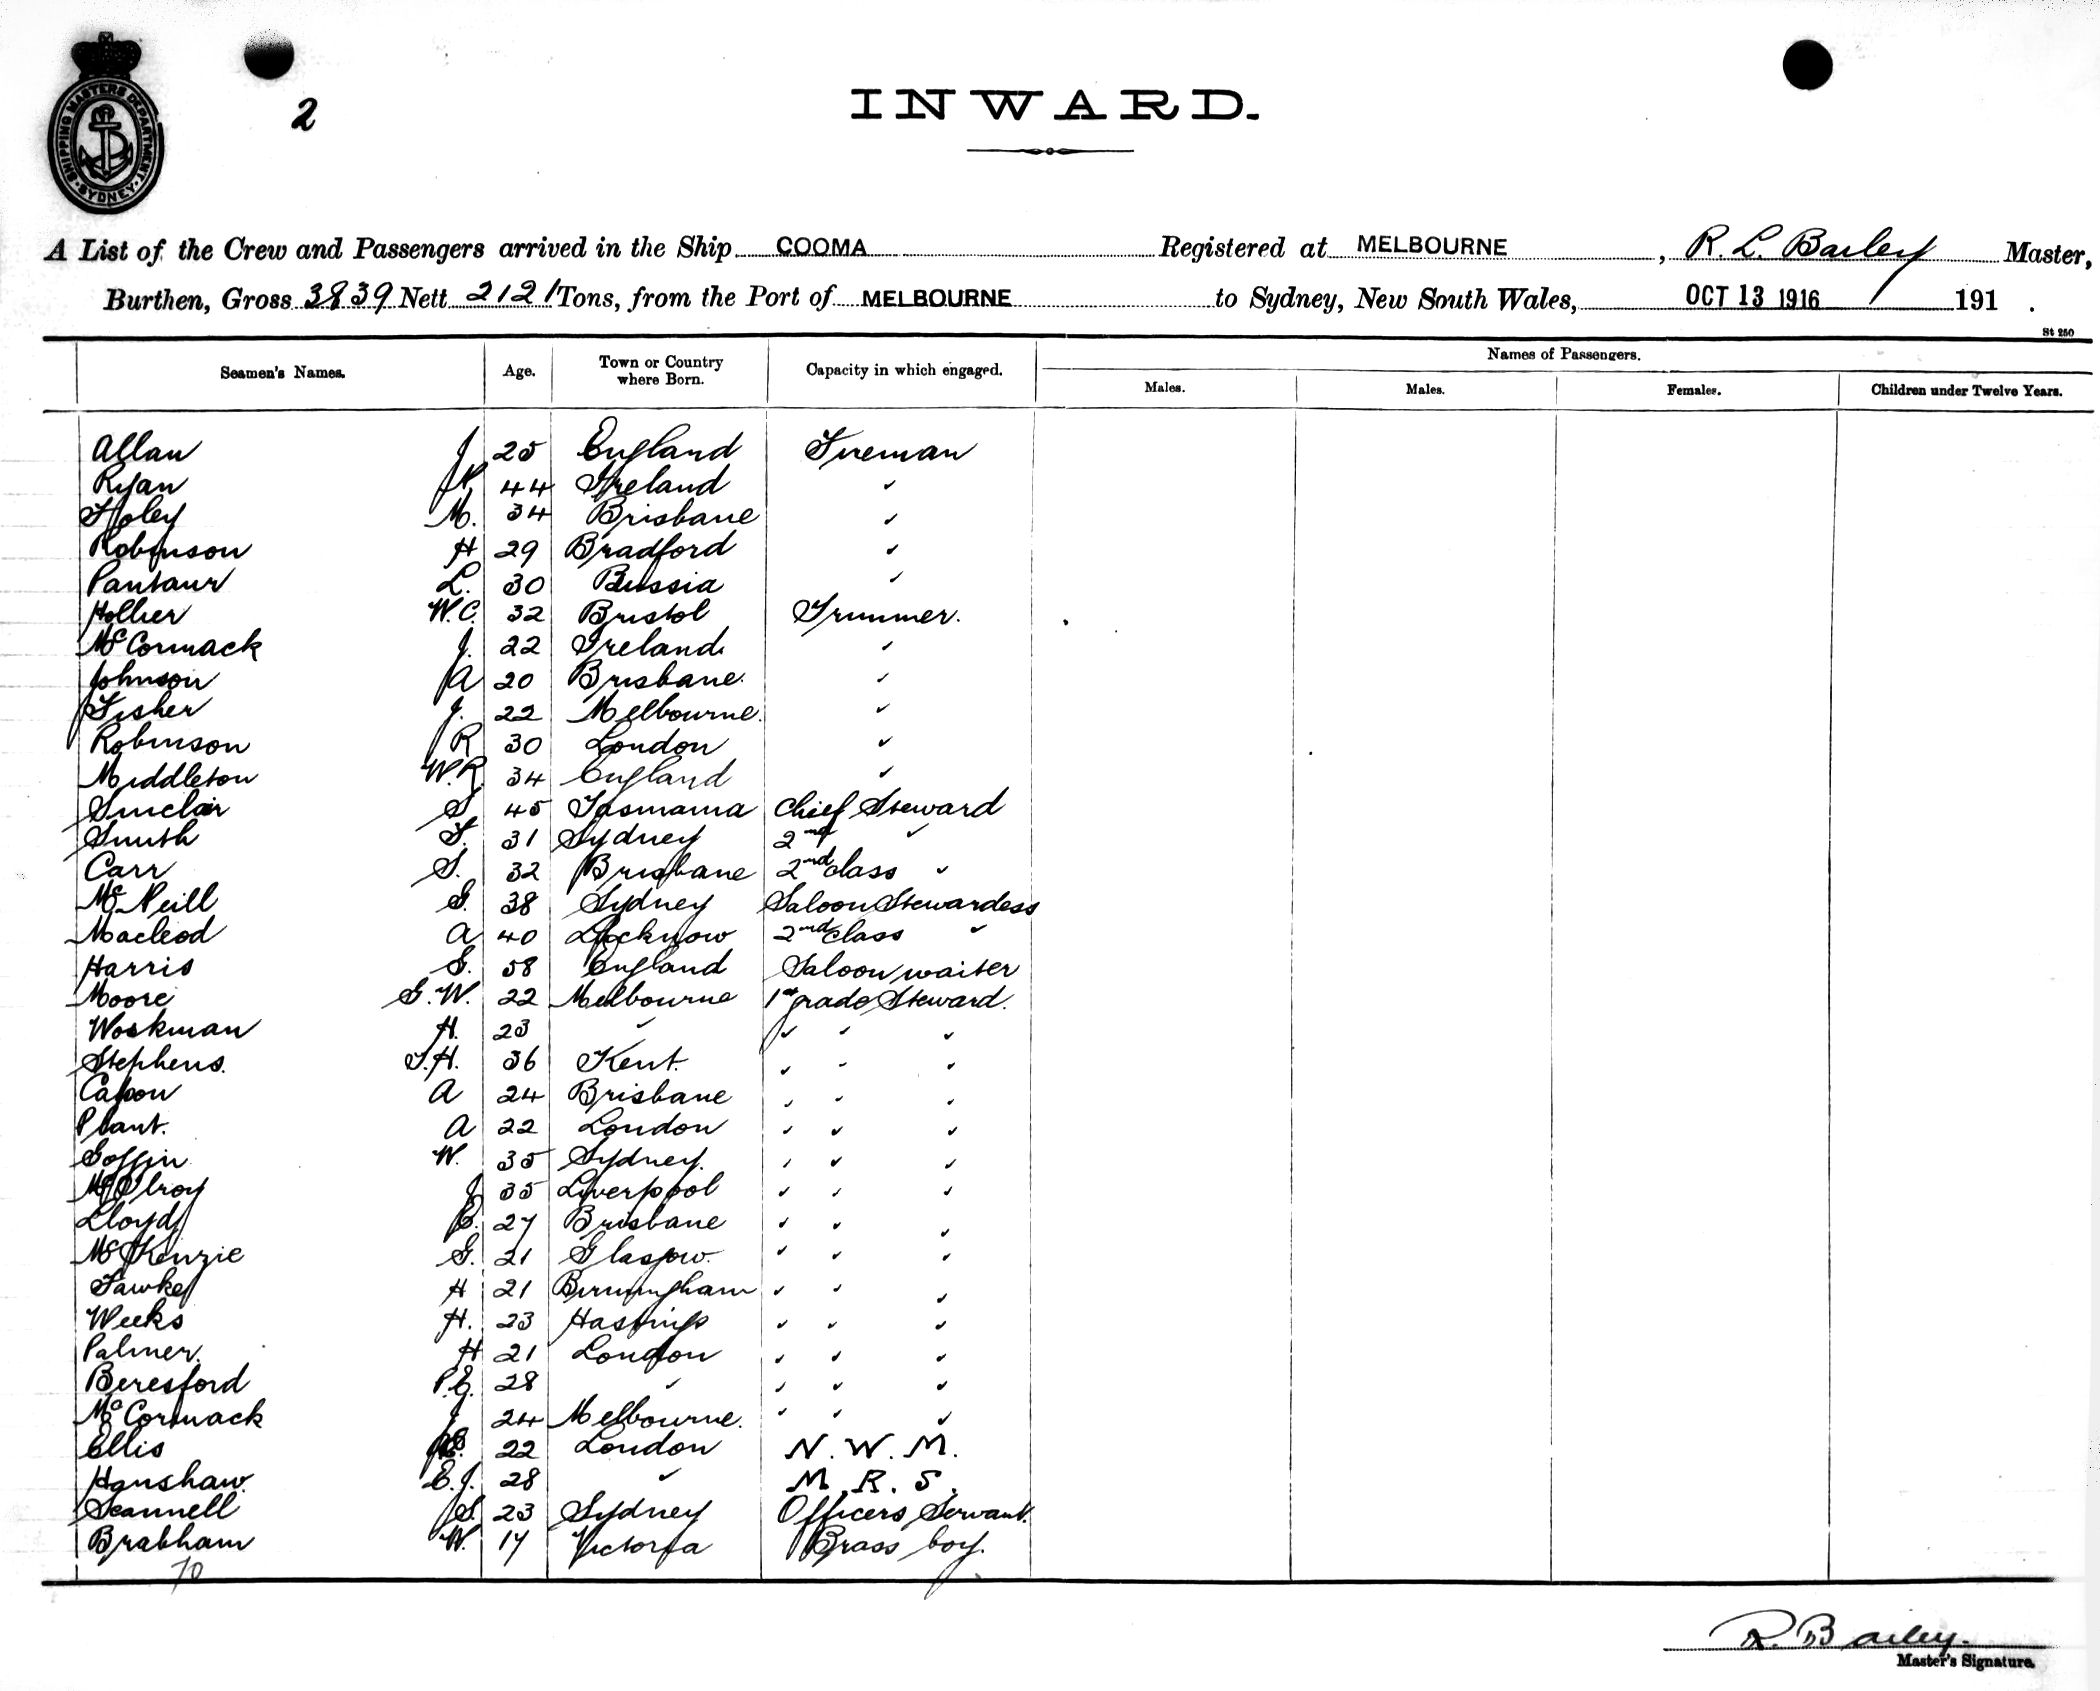 SHIPPING MASTERS DEPARTMENT SYDNEY
2
INWARD.
A List of the Crew and Passengers arrived in the Ship COOMA Registered at MELBOURNE, R. L. Bailey Master,
Burthen, Gross 3839 Nett 2121 Tons, from the Port of MELBOURNE to Sydney, New South Wales, OCT 13 1916 191 .
St 250
Seamen's Names. Age. Town or Country where Born. Capacity in which engaged. Names of Passengers.
Males. Males. Females. Children under Twelve Years.
Allan J. 25 England Fireman
Ryan 44 Ireland ✓
Foley M. 34 Brisbane ✓
Robinson H 29 Bradford ✓
L. 30 Russia ✓
Hollier W.C. 32 Bristol Trimmer.
McCormack J. 22 Ireland ✓
Johnson A 20 Brisbane. ✓
Fisher J. 22 Melbourne. ✓
Robinson R 30 London ✓
Middleton W.R. 34 England ✓
Sinclair S 45 Tasmania Chief Steward
Smith 31 Sydney 2nd ✓
Carr S. 32 Brisbane 2nd class ✓
McNeill G. 38 Sydney Saloon Stewardess
Macleod A 40 Lucknow 2nd class ✓
Harris G. 58 England Saloon waiter
Moore G.W. 22 Melbourne 1st grade Steward.
Workman H. 23 ✓ ✓ ✓ ✓
Stephens. T.H. 36 Kent. ✓ ✓ ✓
Capon A 24 Brisbane ✓ ✓ ✓
Plant. A 22 London ✓ ✓ ✓
Goffin W. 35 Sydney. ✓ ✓ ✓
McElroy J 35 Liverpool ✓ ✓ ✓
Lloyd E. 27 Brisbane ✓ ✓ ✓
McKenzie G. 21 Glasgow. ✓ ✓ ✓
Fawke H 21 Birmingham ✓ ✓ ✓
Weeks H. 23 Hastings ✓ ✓ ✓
Palmer. H 21 London ✓ ✓ ✓
Beresford P.E. 28 ✓ ✓ ✓ ✓
McCormack J 24 Melbourne. ✓ ✓ ✓
Ellis 22 London N. W. M.
Hanshaw. E.J. 28 ✓ M. R. S.
Scannell S. 23 Sydney Officers Servant.
Brabham W. 17 Victoria Brass boy.
70
R. Bailey.
Master's Signature.